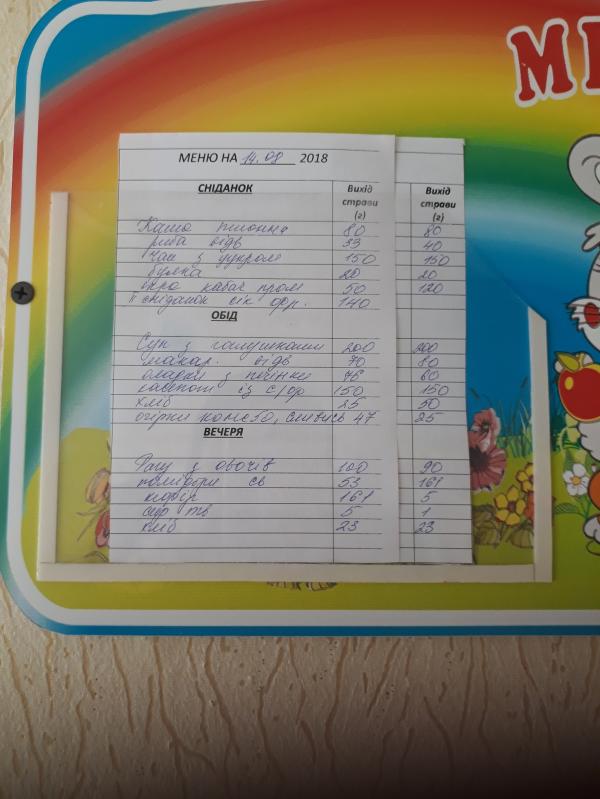 МЕ
МЕНЮ НА 14.08 2018
СНІДАНОК Вихід страви (г) Вихід страви (г)
Каша пшонна 80 80
риба відв 33 40
Чай з цукром 150 150
булка 20 20
ікра кабач пром 50 120
ІІ сніданок сік фр. 140
ОБІД
Суп з галушками 200 200
макар. відв 70 80
оладки з печінки 60
компот із с/фр 150 150
хліб 25 50
огірки конс 50, 47 25
ВЕЧЕРЯ
Рагу з овочів 100 90
помідори св 53 161
кефір 161 5
сир тв 5 1
хліб 23 23